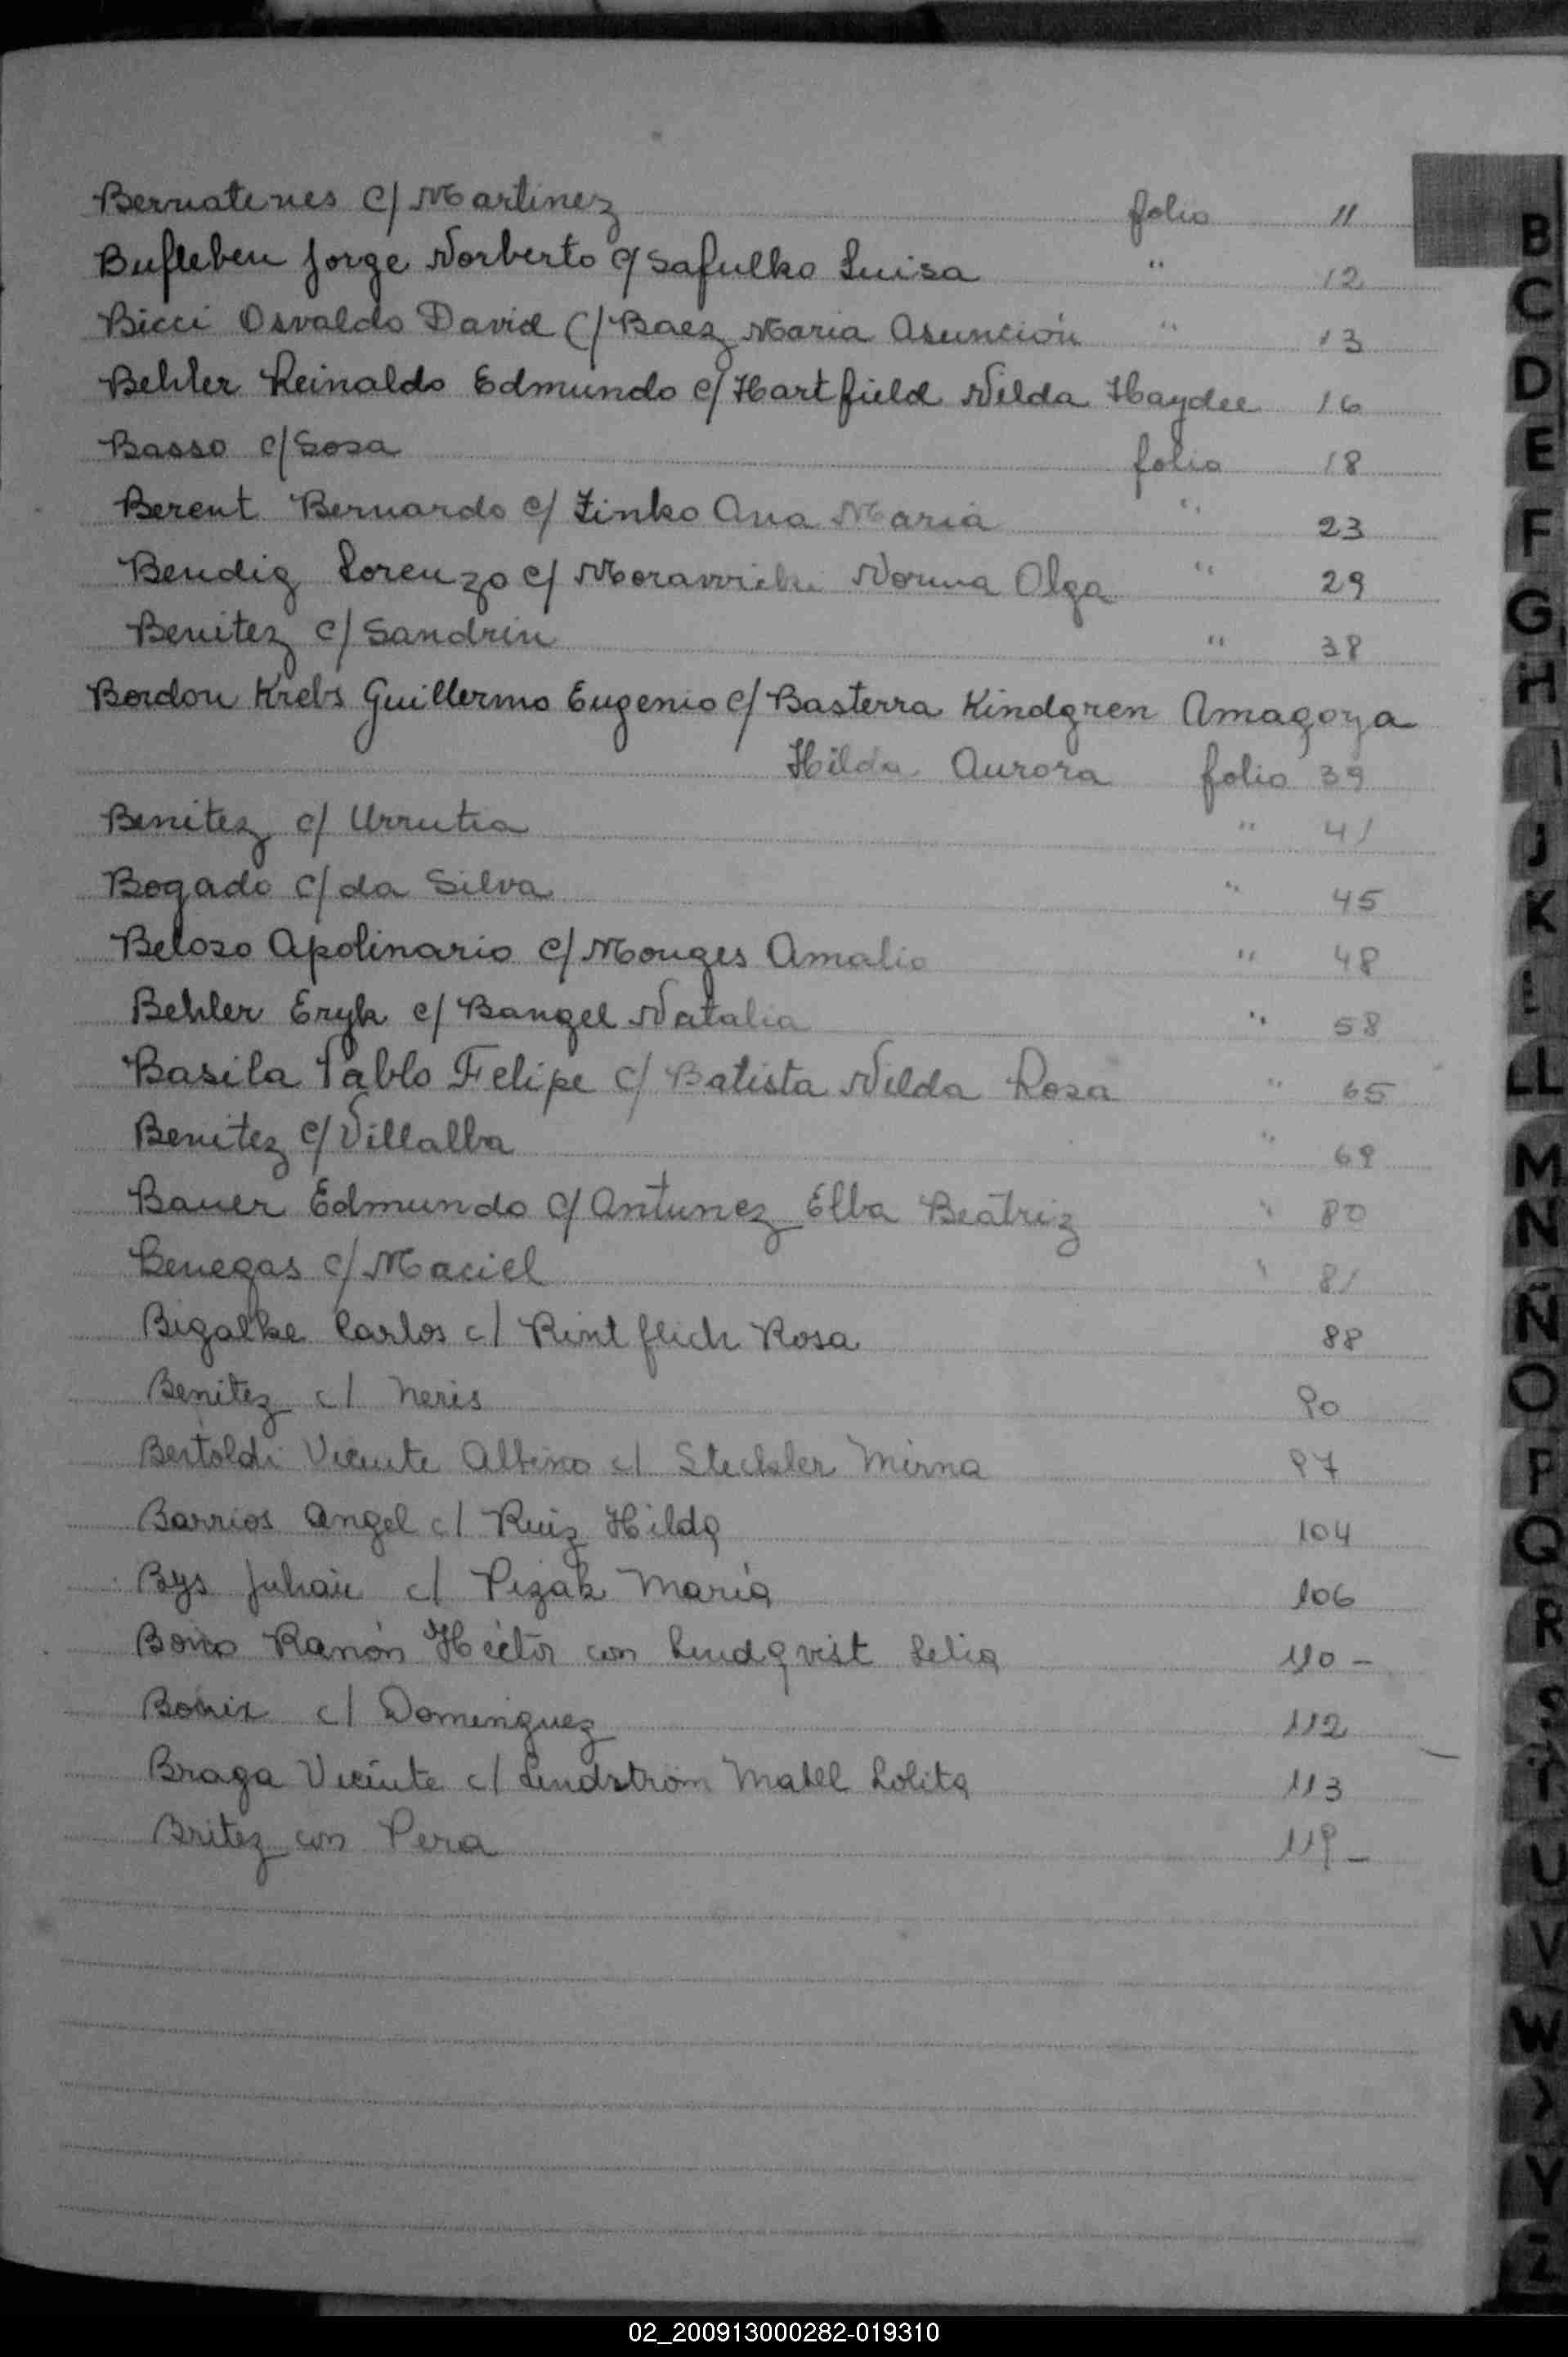 Bernatenes c/ Martinez folio 11
Bufleben Jorge Norberto c/ Safulko Luisa " 12
Bicci Osvaldo David c/ Baez Maria Asunción " 13
Behler Reinaldo Edmundo c/ Hartfield Nilda Haydee 16
Basso c/ Sosa folio 18
Berent Bernardo c/ Zinko Ana Maria " 23
Bendig Lorenzo c/ Norma Olga " 29
Benitez c/ Sandrin " 38
Bordon Krebs Guillermo Eugenio c/ Basterra Kindgren Amagoya
Hilda Aurora folio 39
Benitez c/ Urrutia " 41
Bogado c/ da Silva " 45
Beloso Apolinario c/ Monges Amalia " 48
Behler Eryk c/ Bangel Natalia " 58
Basila Pablo Felipe c/ Batista Nelda Rosa " 65
Benitez c/ Villalba " 69
Bauer Edmundo c/ Antunez Elba Beatriz " 80
Benegas c/ Maciel " 81
Bigalke Carlos c/ Rosa 88
Benitez c/ Neris 90
Bertoldi Vicente Albino c/ Steckler Mirna 97
Barrios Angel c/ Ruiz Hilda 104
Bys Julian c/ Pizak Maria 106
Ramón Héctor con Lindqvist Lelia 110 -
c/ Dominguez 112
Braga Vicente c/ Lindstrom Mabel Lolita 113
Britez con Pera 119 -
B
C
D
E
F
G
H
I
J
K
L
LL
M
N
Ñ
O
P
Q
R
S
T
U
V
W
Y
Z
02_200913000282-019310